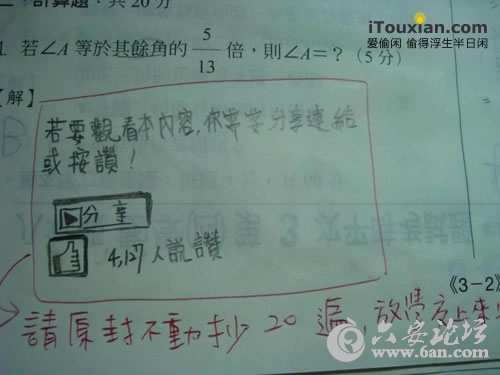 二、計算題：共20分
iTouxian.com
爱偷闲 偷得浮生半日闲
1. 若∠A等於其餘角的5/13倍，則∠A=？（5分）
【解】
若要觀看本內容，你需要分享連結
或按讚！
分享
4,127人說讚
《3-2》
請原封不動抄20遍，放學交上來
六安论坛
www.6an.com